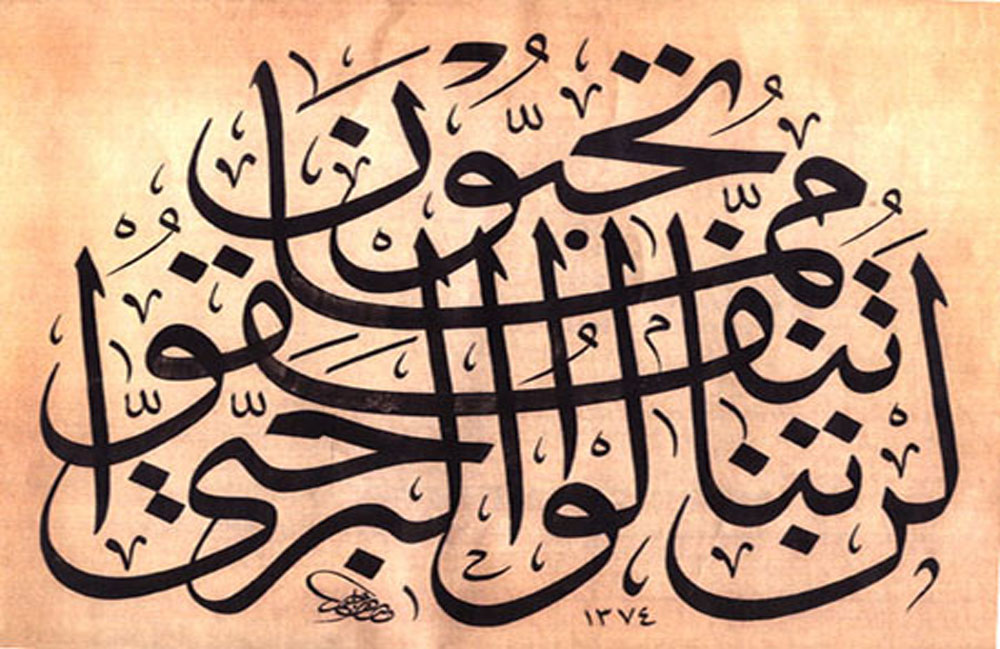 لَنْ تَنَالُوا الْبِرَّ حَتَّى تُنْفِقُوا مِمَّا تُحِبُّونَ
١٣٧٤